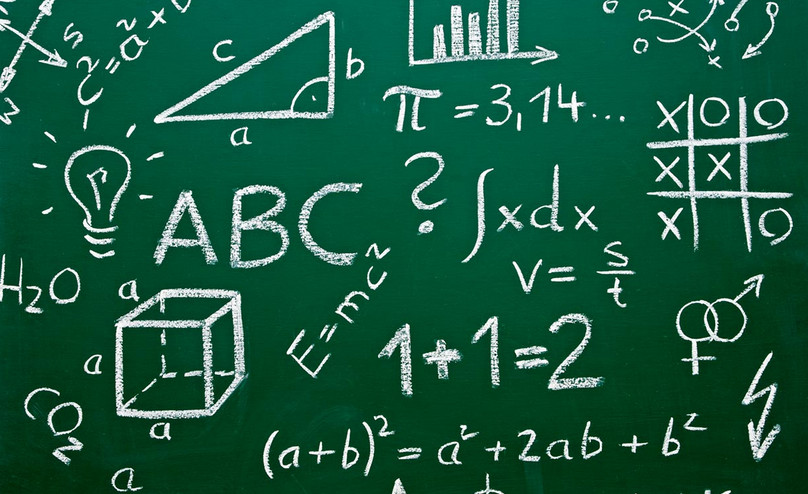 c² = a² x b
c
b
a
π = 3,14...
X O O
X X
X O
ABC
?
∫xdx
v = s/t
H₂O
a
a
a
E=mc²
1+1=2
CO₂
(a+b)² = a² + 2ab + b²
a